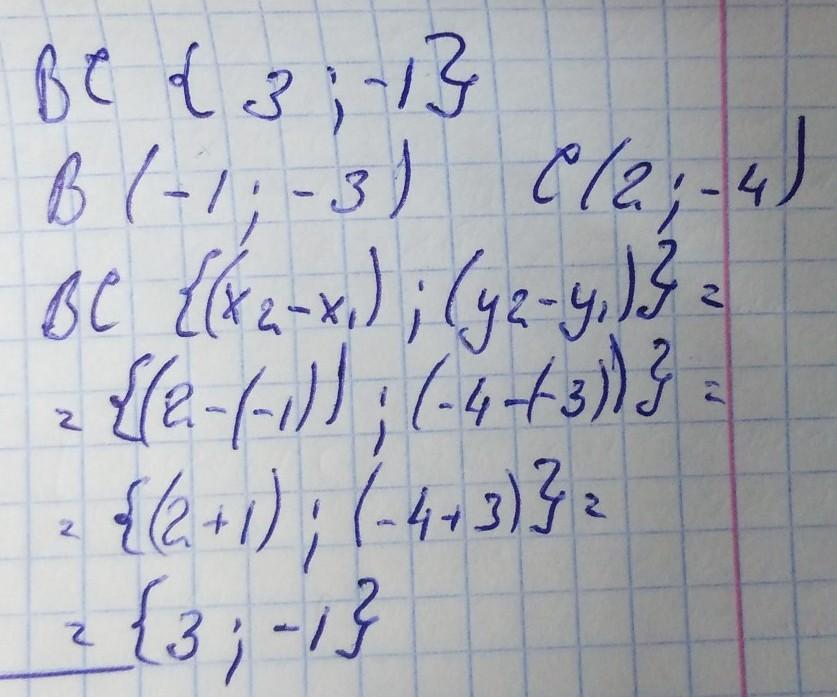 BC { 3 ; -1}
B (-1 ; -3) C(2 ; -4)
BC {(x2-x1) ; (y2-y1)} =
= {(2-(-1)) ; (-4-(-3))} =
= {(2+1) ; (-4+3)} =
= {3 ; -1}